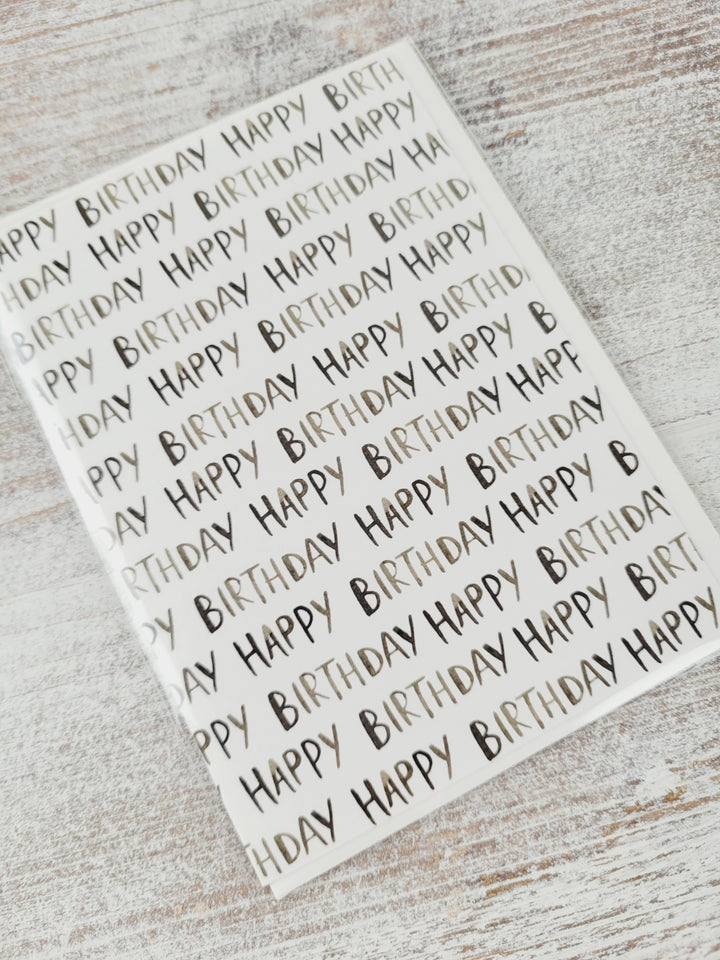 APPY BIRTHDAY HAPPY BIRTH
HDAY HAPPY BIRTHDAY HAPPY
BIRTHDAY HAPPY BIRTHDAY HA
APPY BIRTHDAY HAPPY BIRTHD
HDAY HAPPY BIRTHDAY HAPPY
APPY BIRTHDAY HAPPY BIRTHD
DAY HAPPY BIRTHDAY HAPPY B
RTHDAY HAPPY BIRTHDAY HAPP
PY BIRTHDAY HAPPY BIRTHDAY
DAY HAPPY BIRTHDAY HAPPY B
PPY BIRTHDAY HAPPY BIRTHDAY
HAPPY BIRTHDAY HAPPY BIRT
HDAY HAPPY BIRTHDAY HAPPY